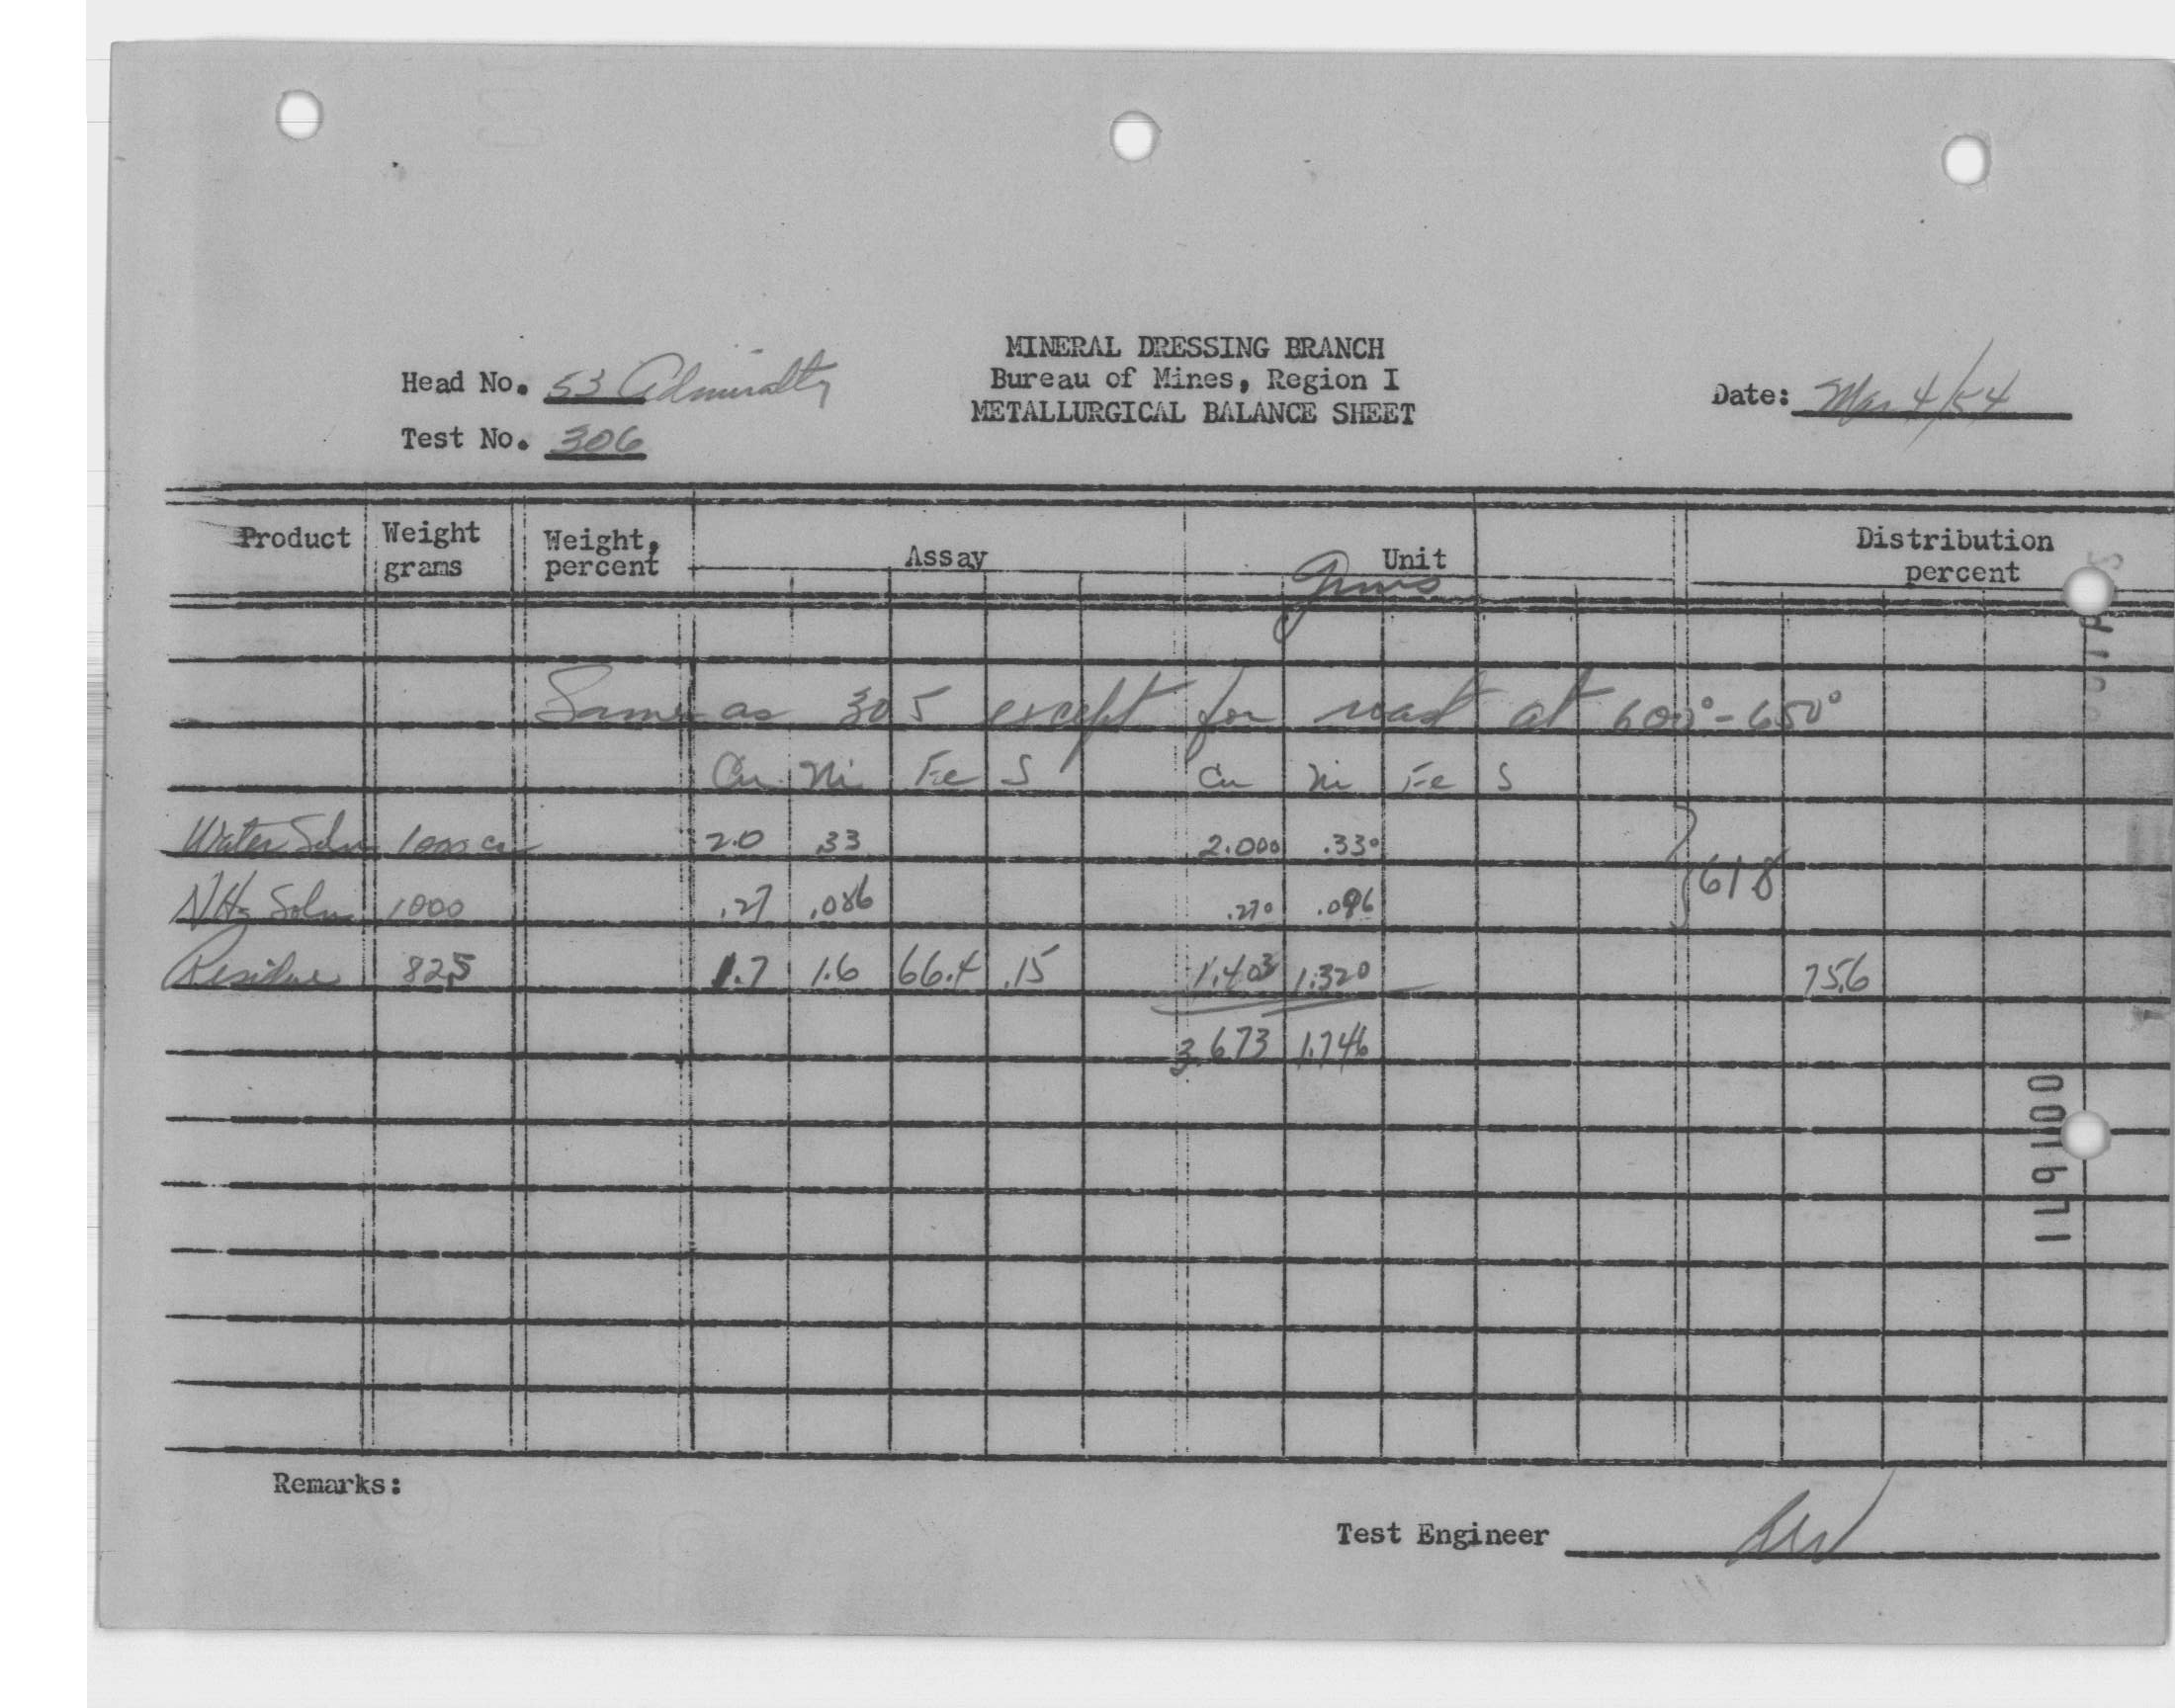 MINERAL DRESSING BRANCH
Head No. 53 Admiralty
Bureau of Mines, Region I
Date: Mar 4/54
METALLURGICAL BALANCE SHEET
Test No. 306
Product Weight grams Weight, percent Assay Unit Distribution percent
Gms
Same as 305 except for roast at 600°-650°
Cu Ni Fe S Cu Ni Fe S
Water Soln 1000 cc 2.0 .33 2.000 .330
61.8
NH3 Soln 1000 .27 .086 .270 .096
Residue 82.5 1.7 1.6 66.4 .15 1.403 1.320 75.6
3.673 1.746
001671
Remarks:
Test Engineer